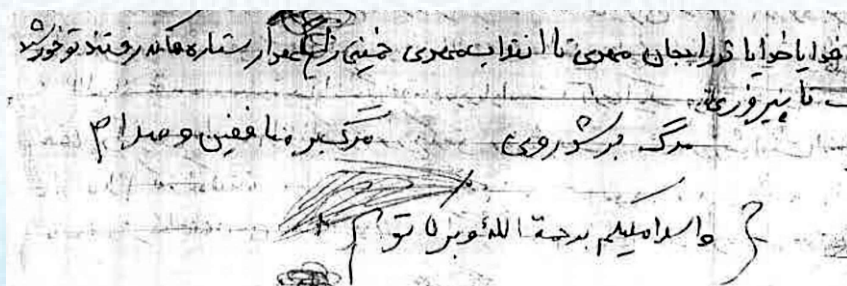 خدایا خدایا تورا بجان مهدی تا انقلاب مهدی خمینی را نگهدار ستاره ها که رفتند تو خورشید
تا پیروزی.
مرگ بر شوروی مرگ بر منافقین و صدام
{ واسلام علیکم برحمة اللّه و برکاتو }